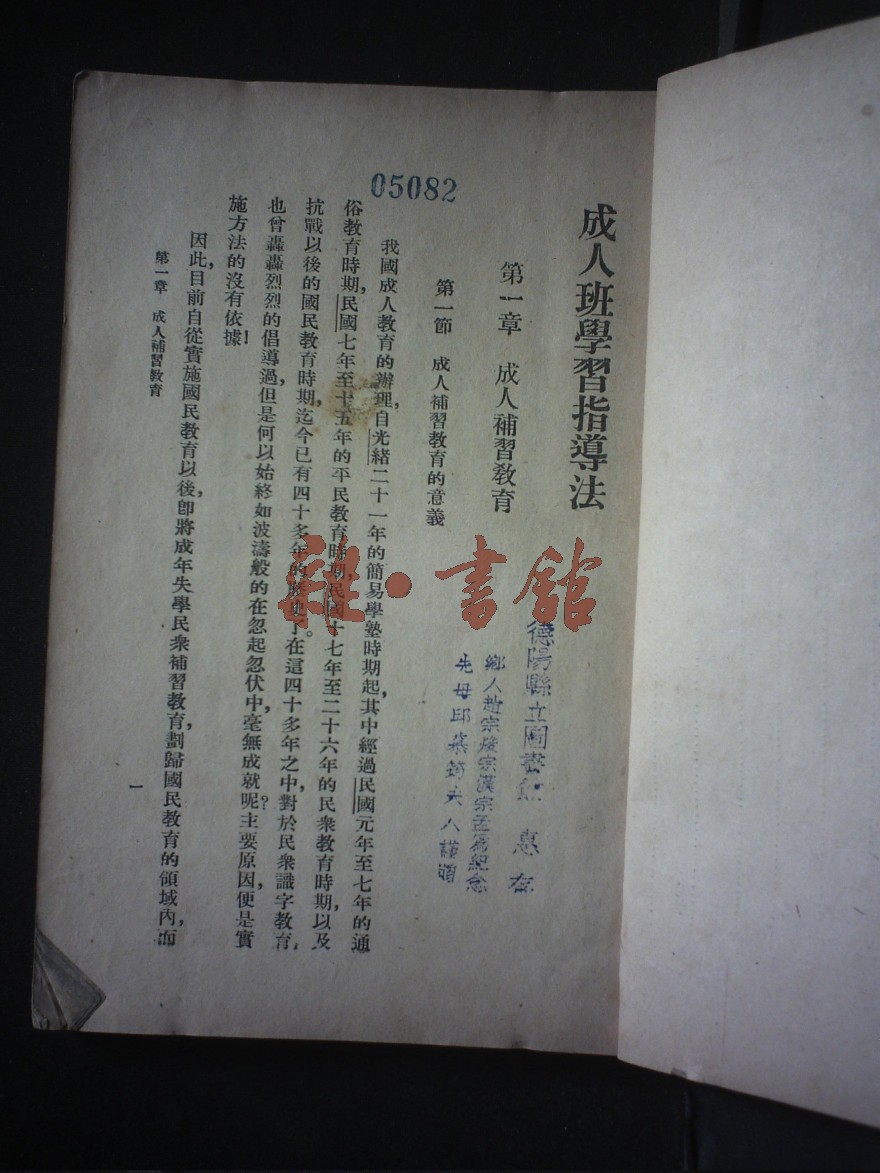 成人班學習指導法
第一章　成人補習教育
第一節　成人補習教育的意義
我國成人教育的辦理，自光緒二十一年的簡易學塾時期起，其中經過民國元年至七年的通
俗教育時期，民國七年至十五年的平民教育時期，民國十七年至二十六年的民衆教育時期，以及
抗戰以後的國民教育時期，迄今已有四十多年的歷史了。在這四十多年之中，對於民衆識字教育，
也曾轟轟烈烈的倡導過，但是何以始終如波濤般的在忽起忽伏中，毫無成就呢？主要原因，便是實
施方法的沒有依據！
因此，目前自從實施國民教育以後，卽將成年失學民衆補習教育，劃歸國民教育的領域內，而
第一章　成人補習教育
一
05082
德陽縣立圖書館　惠存
鄉人趙宗 宗漢宗孟爲紀念
先母邱 筠夫人謹贈
雜·書館